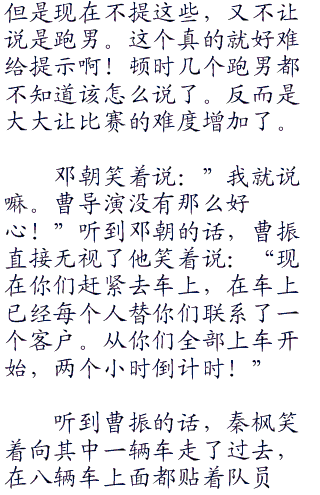 但是现在不提这些，又不让
说是跑男。这个真的就好难
给提示啊！顿时几个跑男都
不知道该怎么说了。反而是
大大让比赛的难度增加了。
邓朝笑着说：”我就说
嘛。曹导演没有那么好
心！”听到邓朝的话，曹振
直接无视了他笑着说：“现
在你们赶紧去车上，在车上
已经每个人替你们联系了一
个客户。从你们全部上车开
始，两个小时倒计时！”
听到曹振的话，秦枫笑
着向其中一辆车走了过去，
在八辆车上面都贴着队员